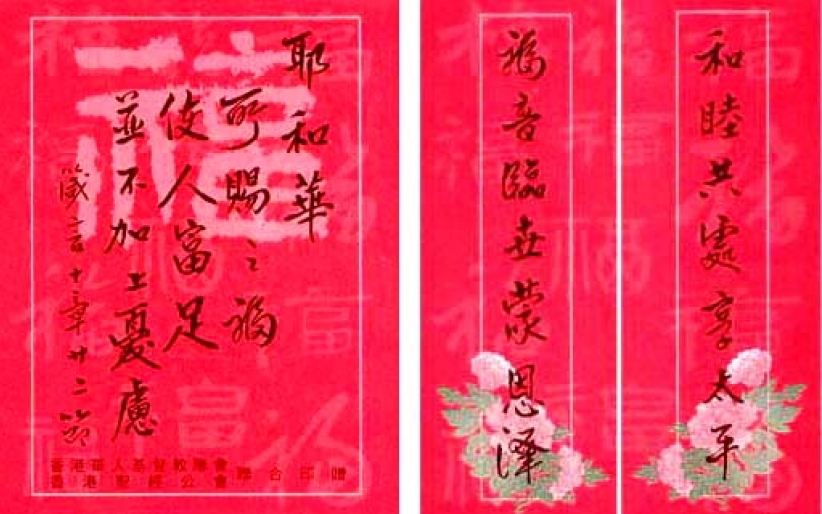 耶和華
所賜之福
使人富足
並不加上憂慮
箴言十章廿二節
香港華人基督教聯會
香港聖經公會
聯合印贈
和睦共處享太平
福音臨世蒙恩澤
福
富